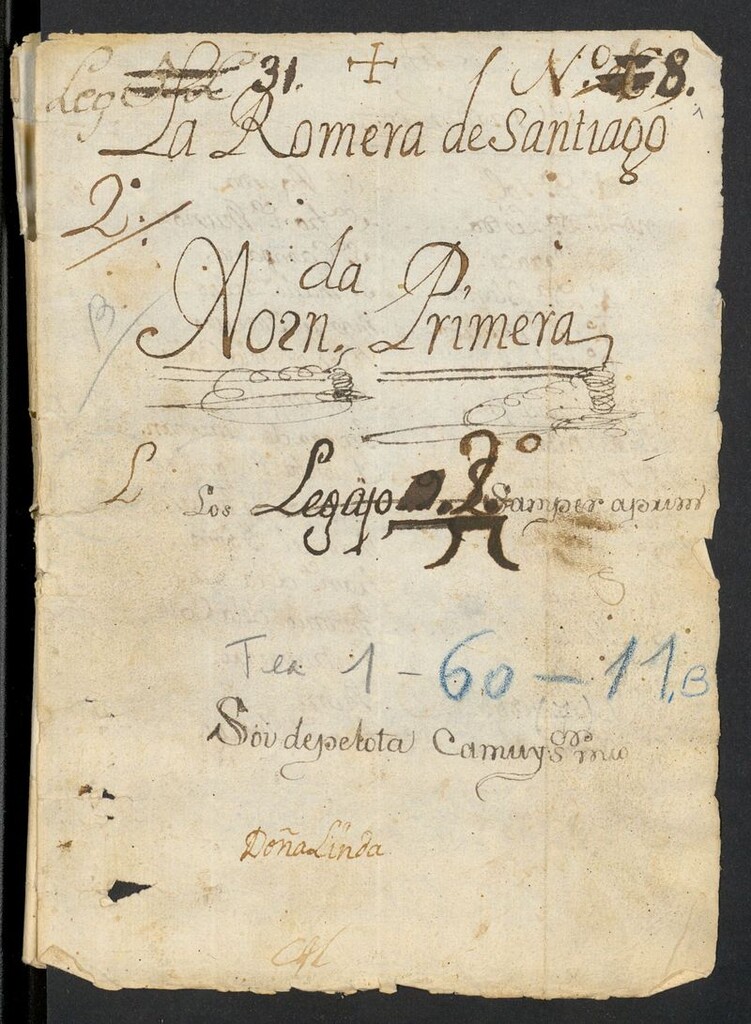 Leg.º 31. + 1 N.º 8.
La Romera de Santiago
2.º
Jorn.da P.
Primera
L Los Legajo 2º Samper apunt
Tea 1-60-11, B
Soi de pelota Camuy S.or mio
Doña Linda